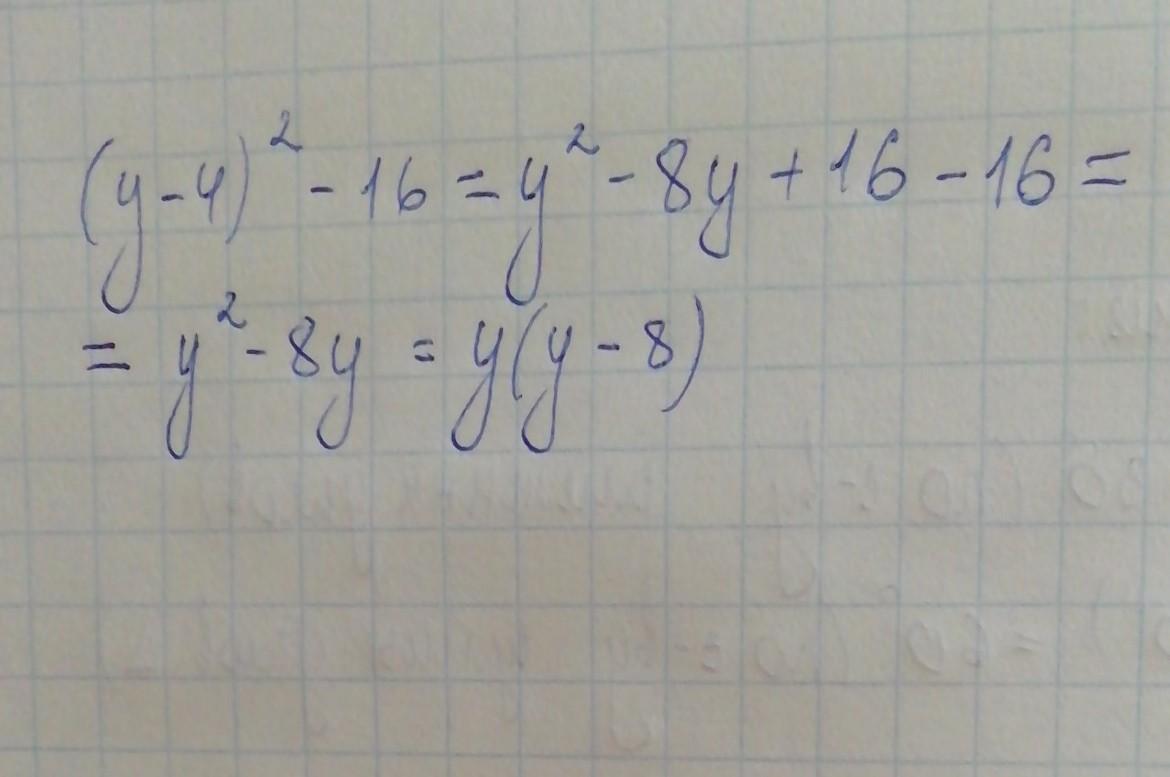 (y-4)² - 16 = y² - 8y + 16 - 16 =
= y² - 8y = y(y - 8)